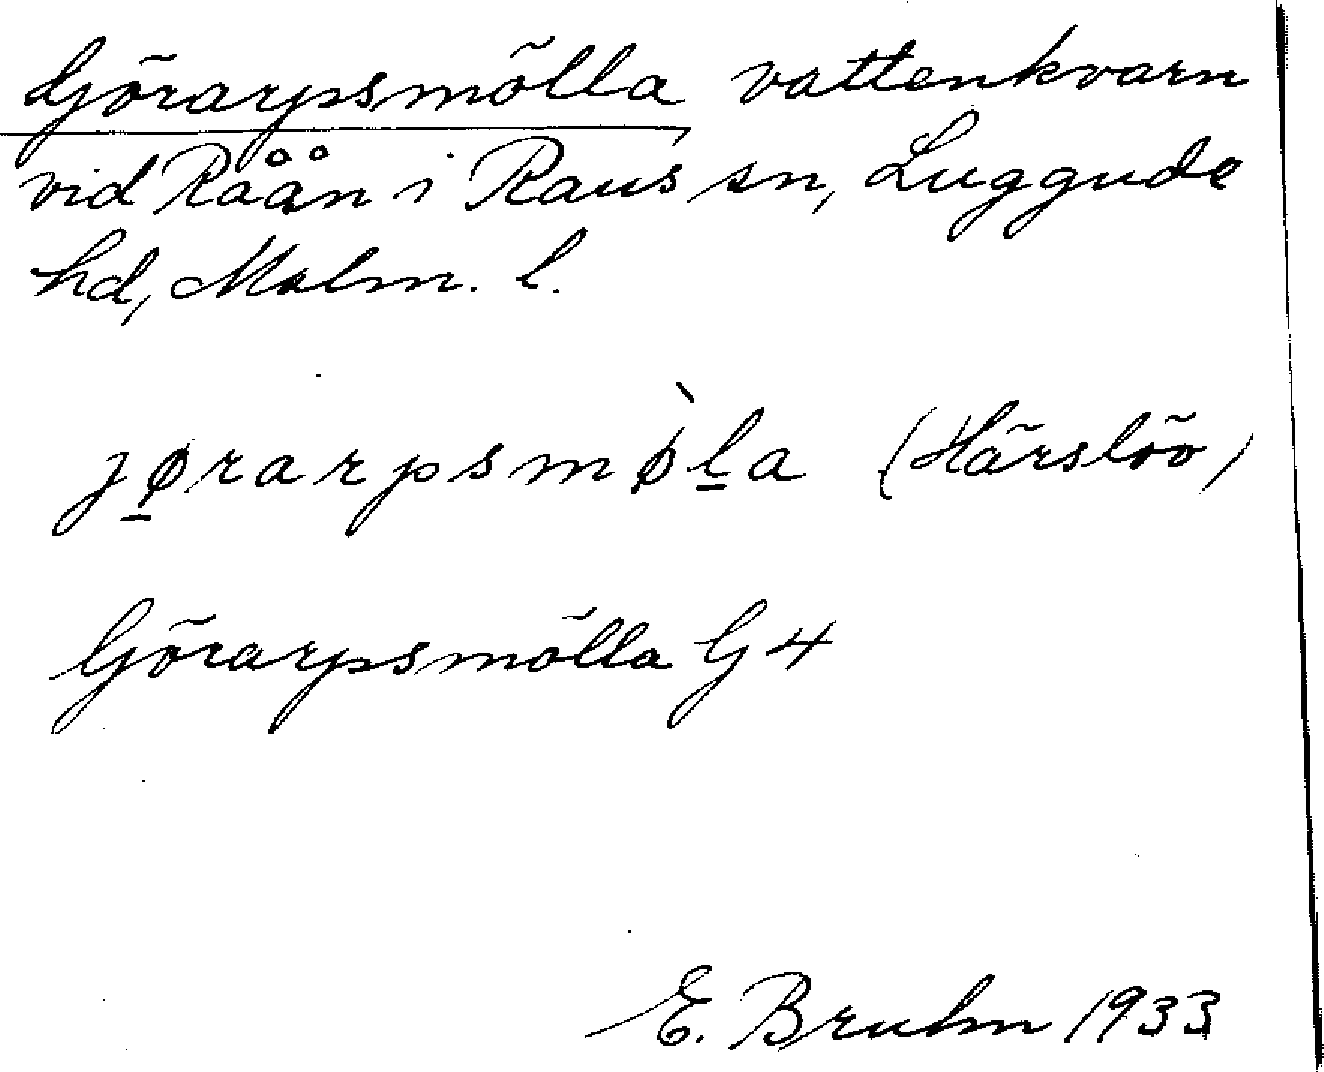 Görarpsmölla vattenkvarn
vid Råån i Raus sn, Luggude
hd, Malm. l.
jø̠rarpsmø̀l̠a (Härslöv)
Görarpsmölla G 4
E. Bruhn 1933